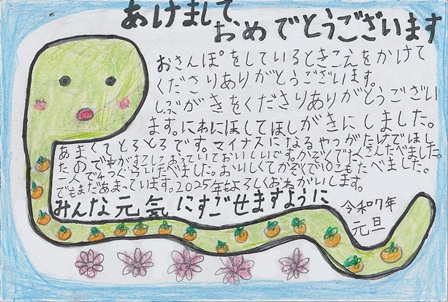 あけまして
おめでとうございます
おさんぽをしているときこえをかけて
くださりありがとうございます。
しぶがきをくださりありがとうござい
ます。にわにほしてほしがきにしました。
あまくてとろとろです。マイナスになるやつがたなでほし
たので中がまこしこおっていておいしいです。かぞくでたくさんたべました。
一人で4つぐらいたべました。おいしくてかぞくで10こもたべました。
でもまだあまっています。2025年もよろしくおねがいします。
みんな元気にすごせますように
令和7年
元旦